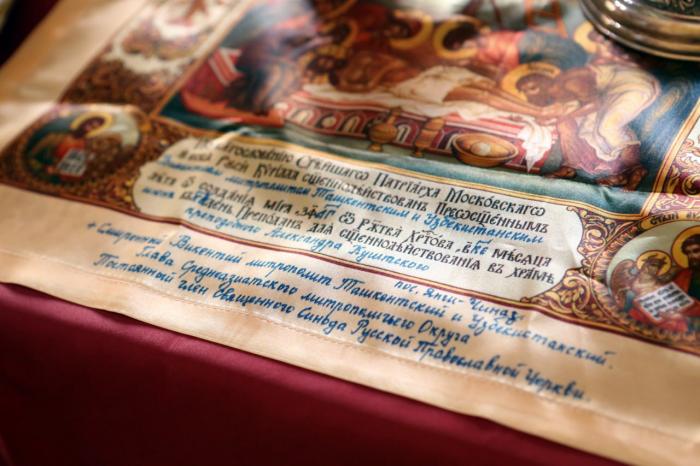 По благословению Святѣйшаго Патрїарха Московскаго
и всеѧ Руси Кѷрілла сщеннодѣйствованъ Преосщѣннымъ
Викентием митрополитом Ташкентским и Узбекистанским
лѣта созданїѧ міра Ржтва Хртова мѣсѧца
Преподанъ длѧ сщеннодѣйствованїѧ въ храмѣ
преподобного Александра Вуштского
пос. Яныг-Чиназ.
+ Смиренный Викентий митрополит Ташкентский и Узбекистанский.
Глава Среднеазиатского митрополичьего Округа
Постоянный член Священного Синода Русской Православной Церкви.